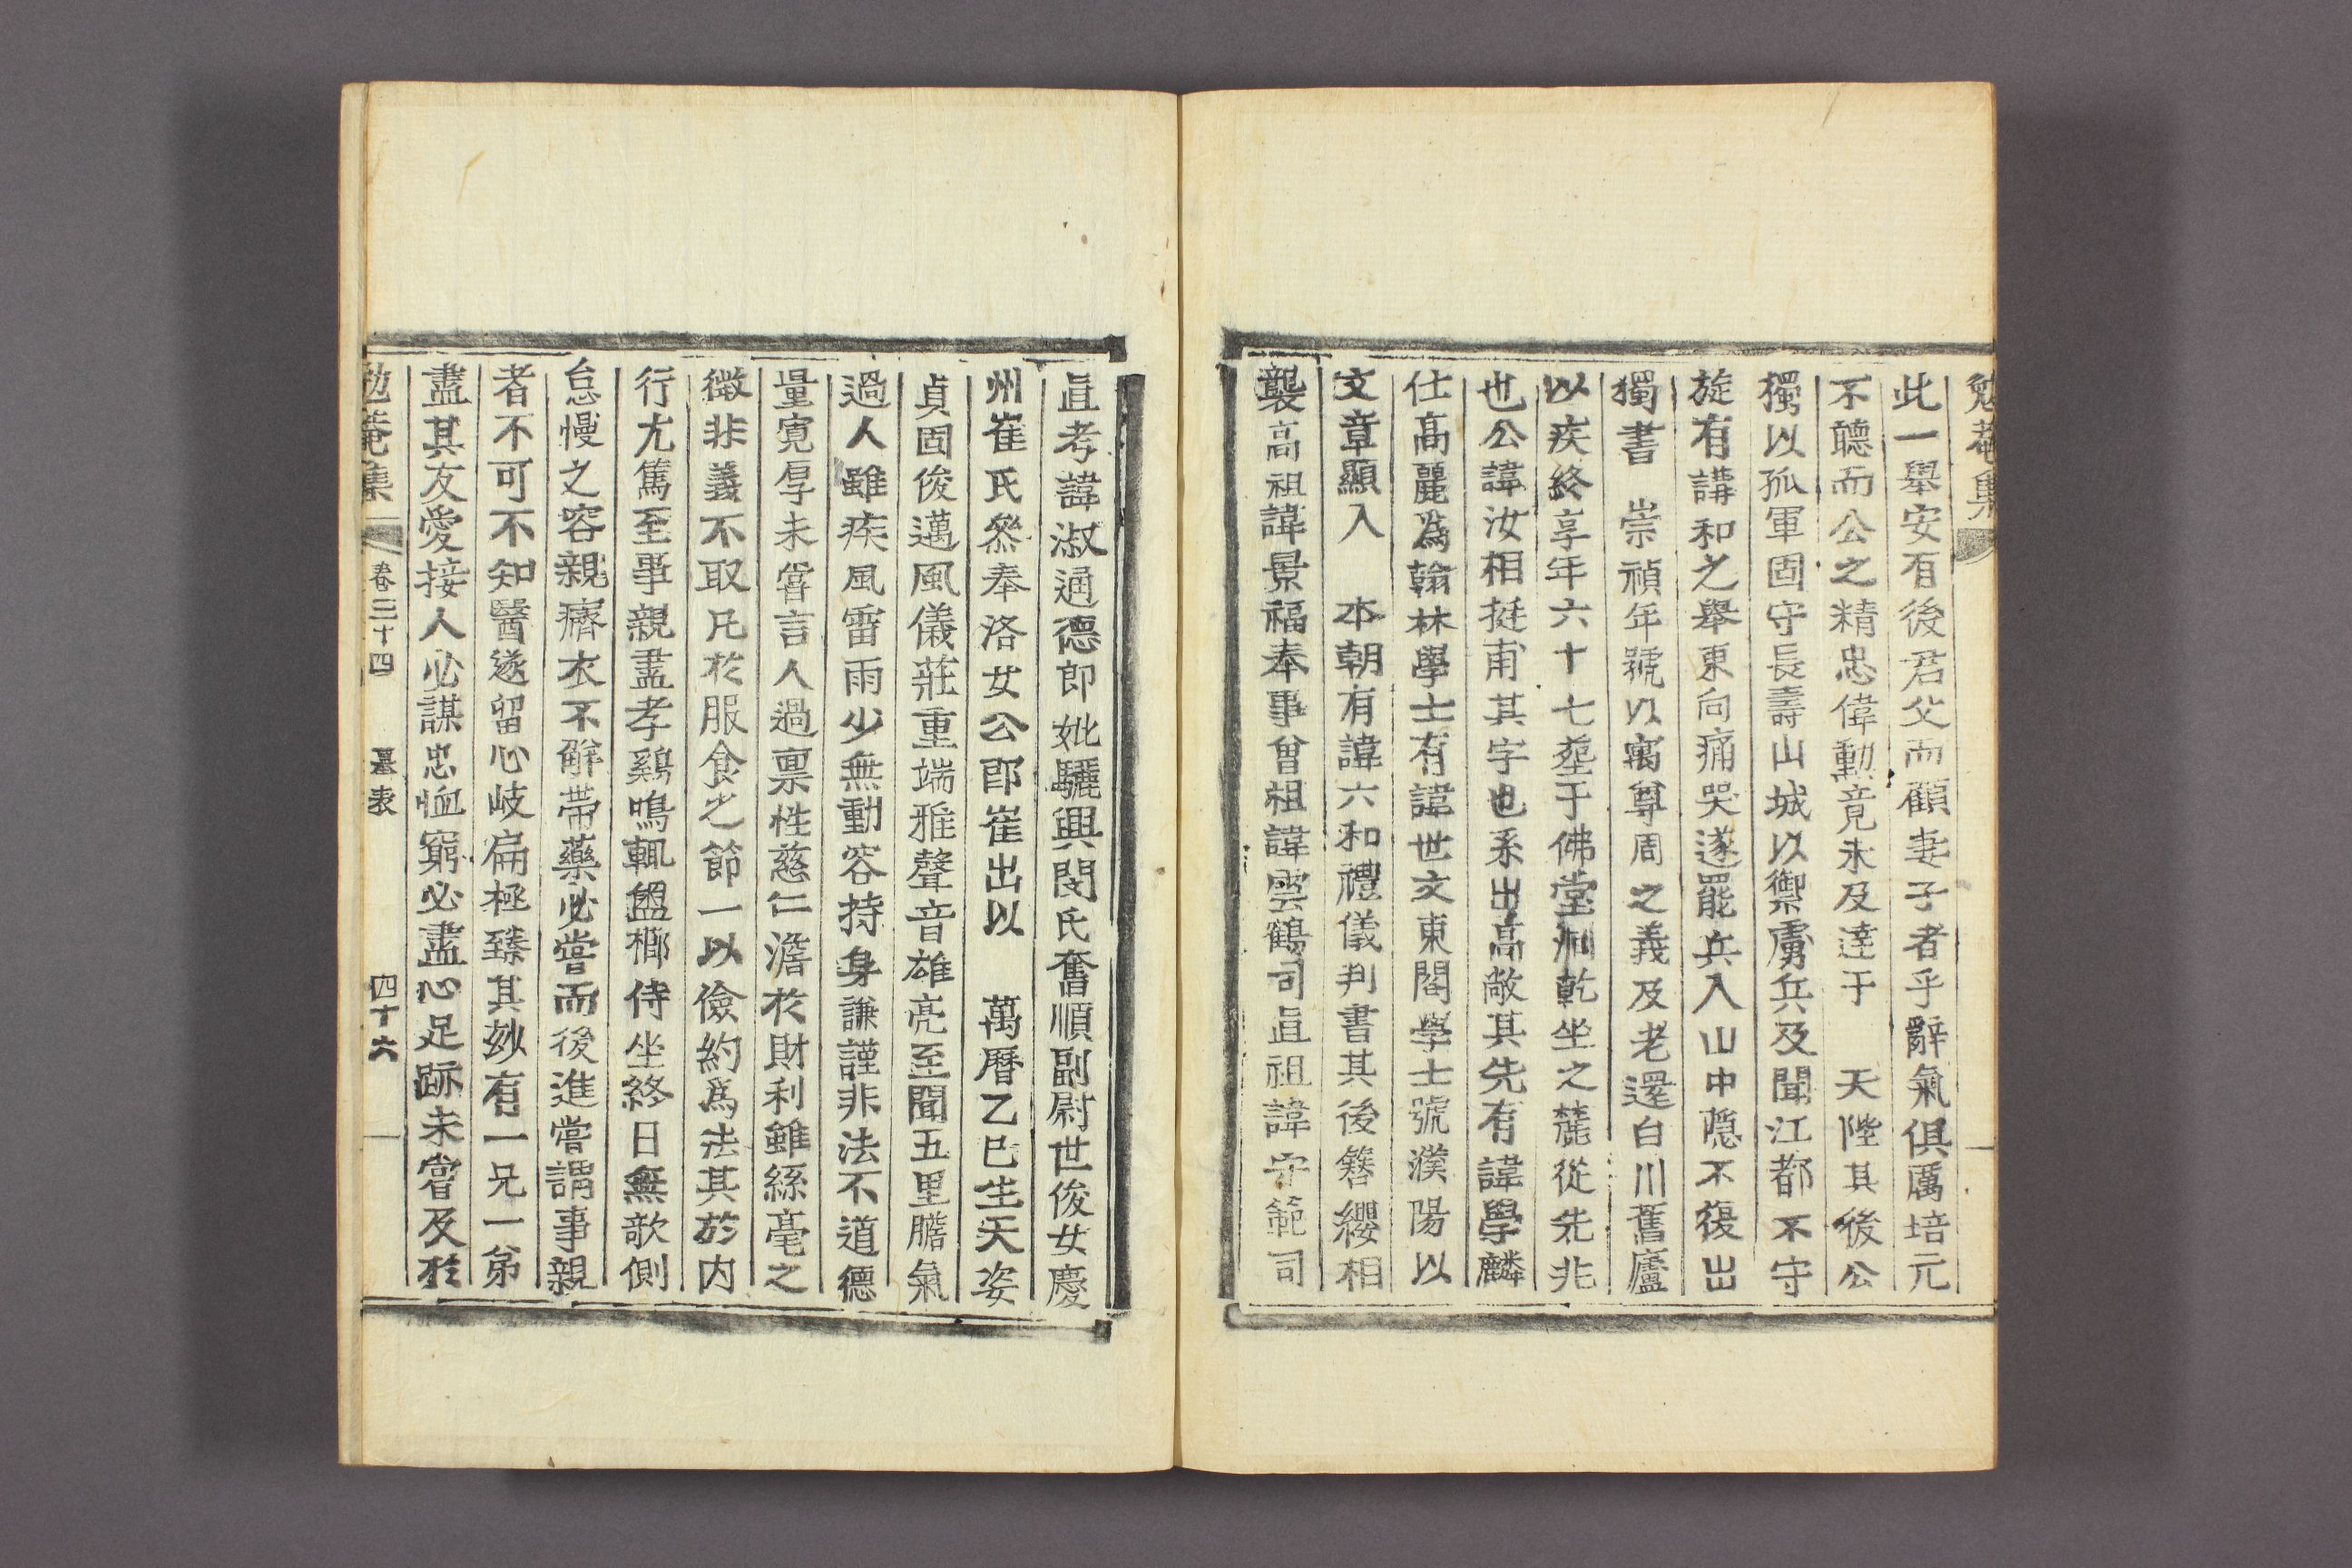 勉菴集
此一擧安有後君父而顧妻子者乎辭氣俱厲培元
不聽而公之精忠偉勳竟未及達于　天陛其後公
獨以孤軍固守長壽山城以禦虜兵及聞江都不守
旋有講和之擧東向痛哭遂罷兵入山中隱不復出
獨書　崇禎年號以寓尊周之義及老還白川舊廬
以疾終享年六十七塟于佛堂洞乾坐之麓從先兆
也公諱汝相挺甫其字也系出高敞其先有諱學麟
仕高麗爲翰林學士有諱世文東閣學士號濮陽以
文章顯入　本朝有諱六和禮儀判書其後簪纓相
襲高祖諱景福奉事曾祖諱雲鶴司直祖諱守範司
直考諱淑通德郎妣驪興閔氏奮順副尉世俊女慶
州崔氏叅奉洛女公郎崔出以　萬曆乙巳生天姿
貞固俊邁風儀莊重端雅聲音雄亮至聞五里膽氣
過人雖疾風雷雨少無動容持身謙謹非法不道德
量寬厚未嘗言人過禀性慈仁澹於財利雖絲毫之
微非義不取凡於服食之節一以儉約爲法其於內
行尤篤至事親盡孝鷄鳴輒盥櫛侍坐終日無欹側
怠慢之容親癠衣不解帶藥必嘗而後進嘗謂事親
者不可不知醫遂留心岐扁極臻其玅有一兄一弟
盡其友愛接人必謀忠恤窮必盡心足跡未嘗及於
勉菴集　卷三十四　墓表　四十六